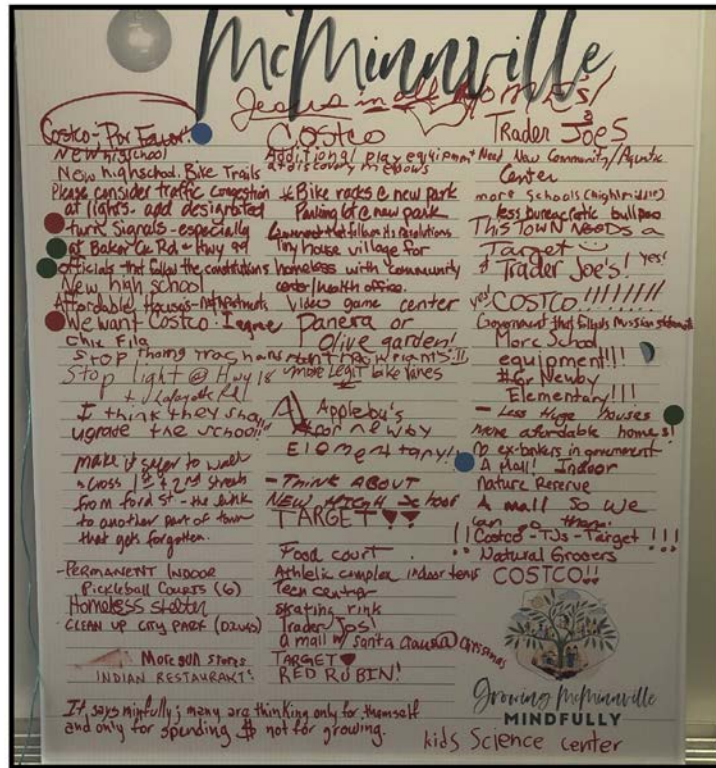 McMinnville
Jesus in all HOMES!
Costco - Por Favor!
New highschool
New highschool. Bike Trails
Please consider traffic congestion
at lights - add designated
turn signals - especially
at Baker Cr Rd & Hwy 99
officials that follow the constitutions
New high school
Affordable Houses - not apartments
We want Costco. I agree
Chix Fila
Stop
Stop light @ Hwy 18
& Lafayette Rd
I think they shou
ugrade the school!!
make it safer to walk
across 1st & 2nd streets
from Ford St - the link
to another part of town
that gets forgotten.
- PERMANENT INDOOR
Pickleball Courts (6)
Homeless shelter
CLEAN UP CITY PARK
More gun stores
INDIAN RESTAURANT!
It says minfully; many are thinking only for themself
and only for spending $ not for growing.
COSTCO
Additional play equipment
at discovery meadows
* Bike racks @ new park
Parking lot @ new park
Government that follows its resolutions
Tiny house village for
homeless with community
center/health office.
Video game center
Panera or
Olive garden!
more LEGIT bike lanes
A Applebu's
for newby
Elementary!!
- THINK ABOUT
NEW HIGH School
TARGET ♥♥
Food court
Athletic complex indoor tenis
Teen center
skating rink
Trader Jos!
a mall w/ santa claus @ Christmas
TARGET ♥
RED ROBIN!
Trader Joes
Need New Community/Aquatic
Center
more schools (high/middle)
less bureacratic
THIS TOWN NEEDS a
Target
& Trader Joe's! yes!
yes! COSTCO!!!!!!!!
Government that follows mission statements
More School
equipment!!!
for Newby
Elementary!!!
- Less Huge houses
more afordable homes!
No ex-bankers in government
A Mall! Indoor
Nature Reserve
A mall so we
can go there.
!! Costco - TJs - Target !!!
Natural Grocers
COSTCO!!
Growing McMinnville
MINDFULLY
kids Science center